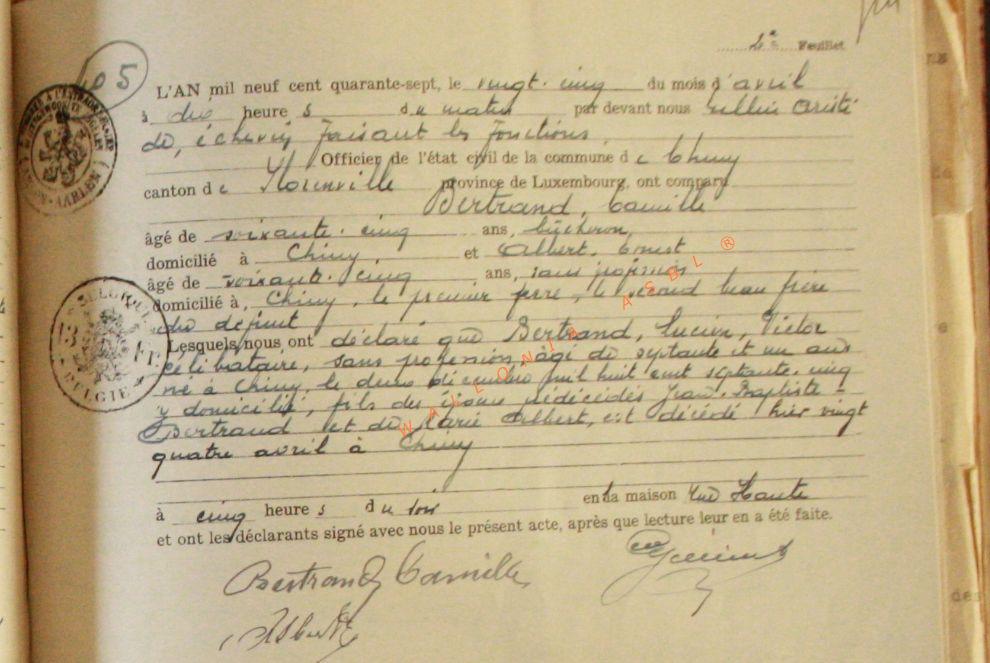 2e Feuillet
105
L'AN mil neuf cent quarante-sept, le vingt-cinq du mois d'avril
à dix heures du matin par devant nous Aristi
de, échevin faisant les fonctions
Officier de l'état civil de la commune de Chiny
canton de Florenville province de Luxembourg, ont comparu
Bertrand, Camille
âgé de soixante-cinq ans, bûcheron,
domicilié à Chiny et Albert, Ernest
âgé de soixante-cinq ans, sans profession
domicilié à Chiny, le premier frère, le second beau frère
du défunt
Lesquels nous ont déclaré que Bertrand, Lucien, Victor
célibataire, sans profession, âgé de septante et un ans
né à Chiny, le décembre mil huit cent septante-cinq
y domicilié, fils des prédécédés Jean-Baptiste
Bertrand et de Marie Albert, est décédé hier vingt
quatre avril à Chiny
à cinq heures du soir en la maison rue Haute
et ont les déclarants signé avec nous le présent acte, après que lecture leur en a été faite.
Bertrand Camille
WALLONIA ASBL ®